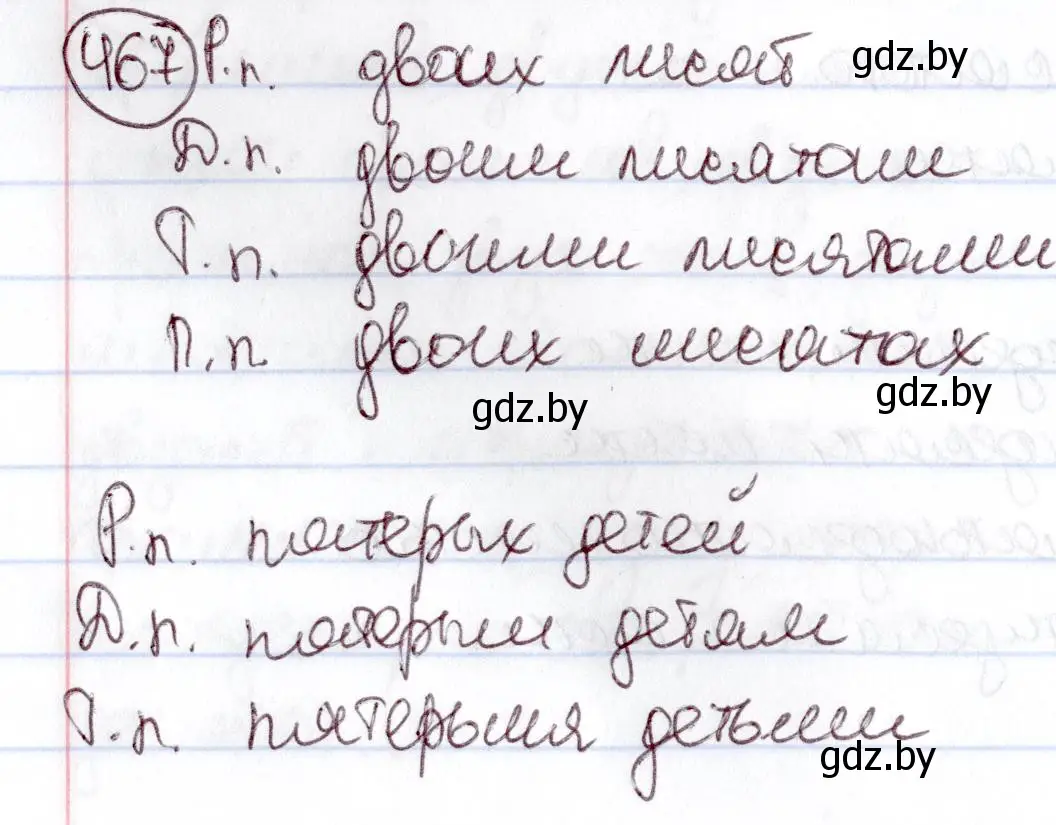 467 Р.п. двоих лисят
gdz.by
Д.п. двоим лисятам
Т.п. двоими лисятами
П.п. двоих лисятах
gdz.by gdz.by
Р.п. пятерых детей
Д.п. пятерым детям
Т.п. пятерымя детьми
gdz.by